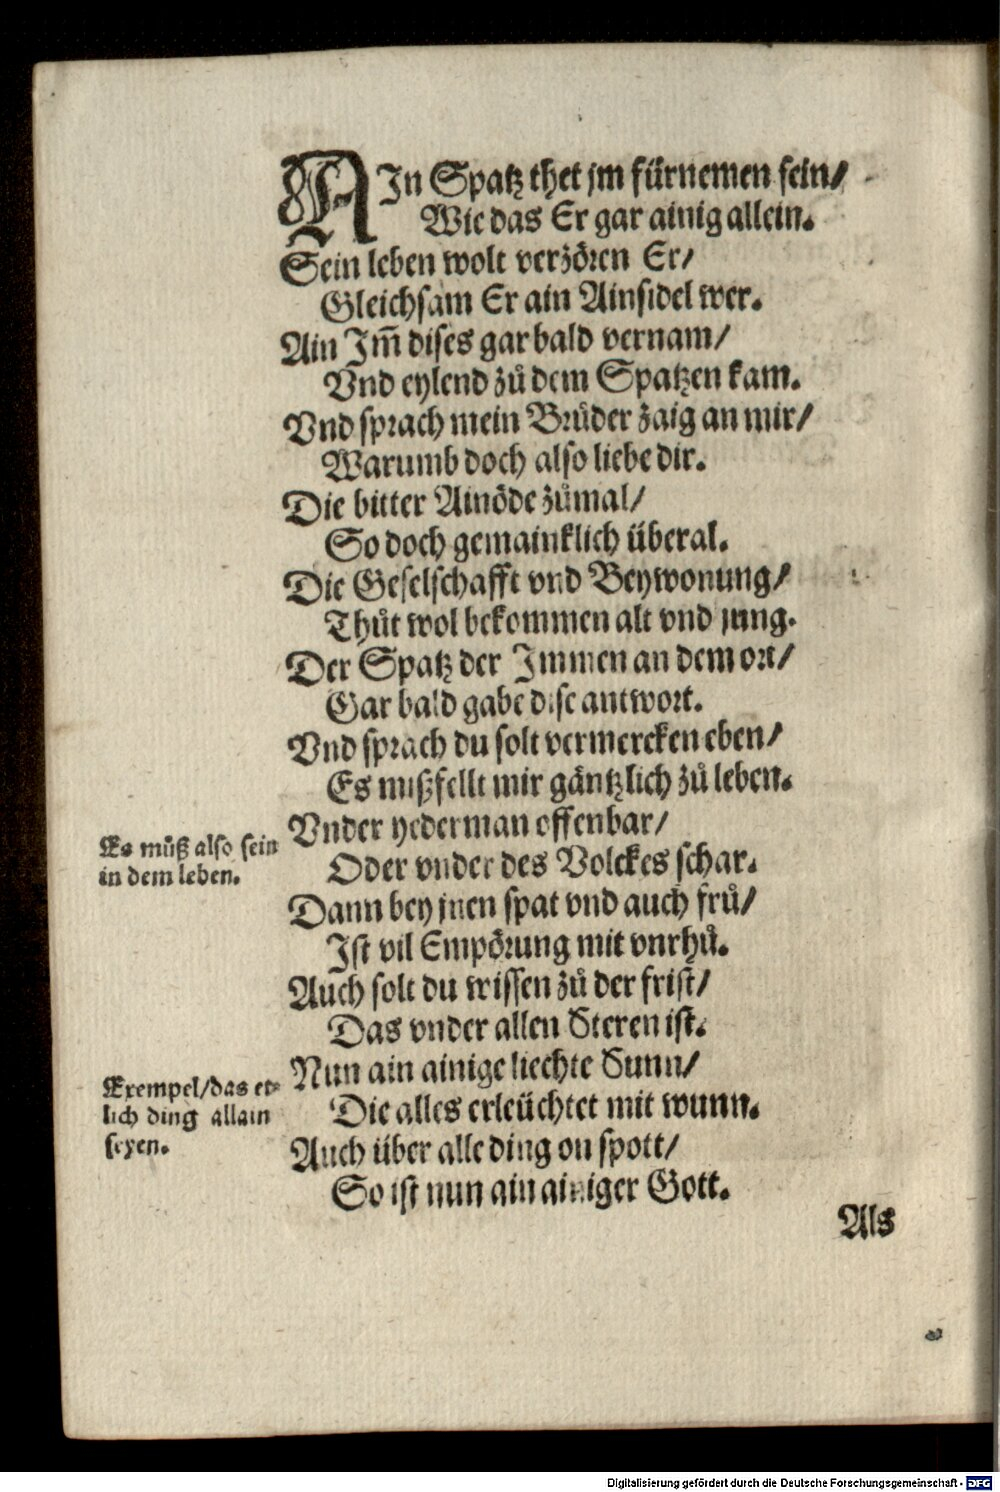 AIn Spatz thet jm fürnemen sein/
Wie das Er gar ainig allein.
Sein leben wolt verzören Er/
Gleichsam Er ain Ainsidel wer.
Ain Im̃ dises gar bald vernam/
Vnd eylend zů dem Spatzen kam.
Vnd sprach mein Brůder zaig an mir/
Warumb doch also liebe dir.
Die bitter Ainöde zůmal/
So doch gemainklich überal.
Die Geselschafft vnd Beywonung/
Thůt wol bekommen alt vnd jung.
Der Spatz der Immen an dem ort/
Gar bald gabe dise antwort.
Vnd sprach du solt vermercken eben/
Es mißfellt mir gäntzlich zů leben.
Es můß also sein
in dem leben.
Vnder yederman offenbar/
Oder vnder des Volckes schar.
Dann bey jnen spat vnd auch frů/
Ist vil Empörung mit vnrhů.
Auch solt du wissen zů der frist/
Das vnder allen Steren ist.
Exempel/das et-
lich ding allain
seyen.
Nun ain ainige liechte Sunn/
Die alles erleüchtet mit wunn.
Auch über alle ding on spott/
So ist nun ain ainiger Gott.
Als
Digitalisierung gefördert durch die Deutsche Forschungsgemeinschaft - DFG